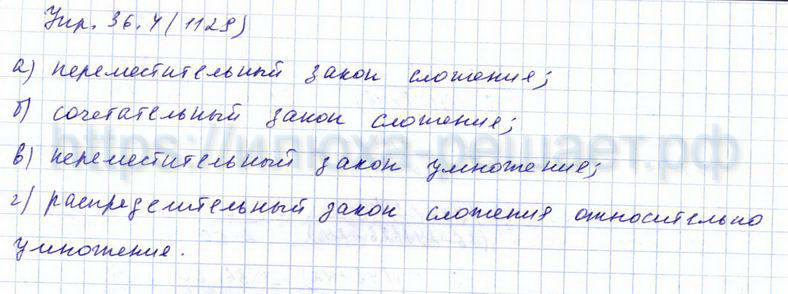 Упр. 36.4(1129)
а) переместительный закон сложения;
б) сочетательный закон сложения;
в) переместительный закон умножения;
г) распределительный закон сложения относительно
умножения.